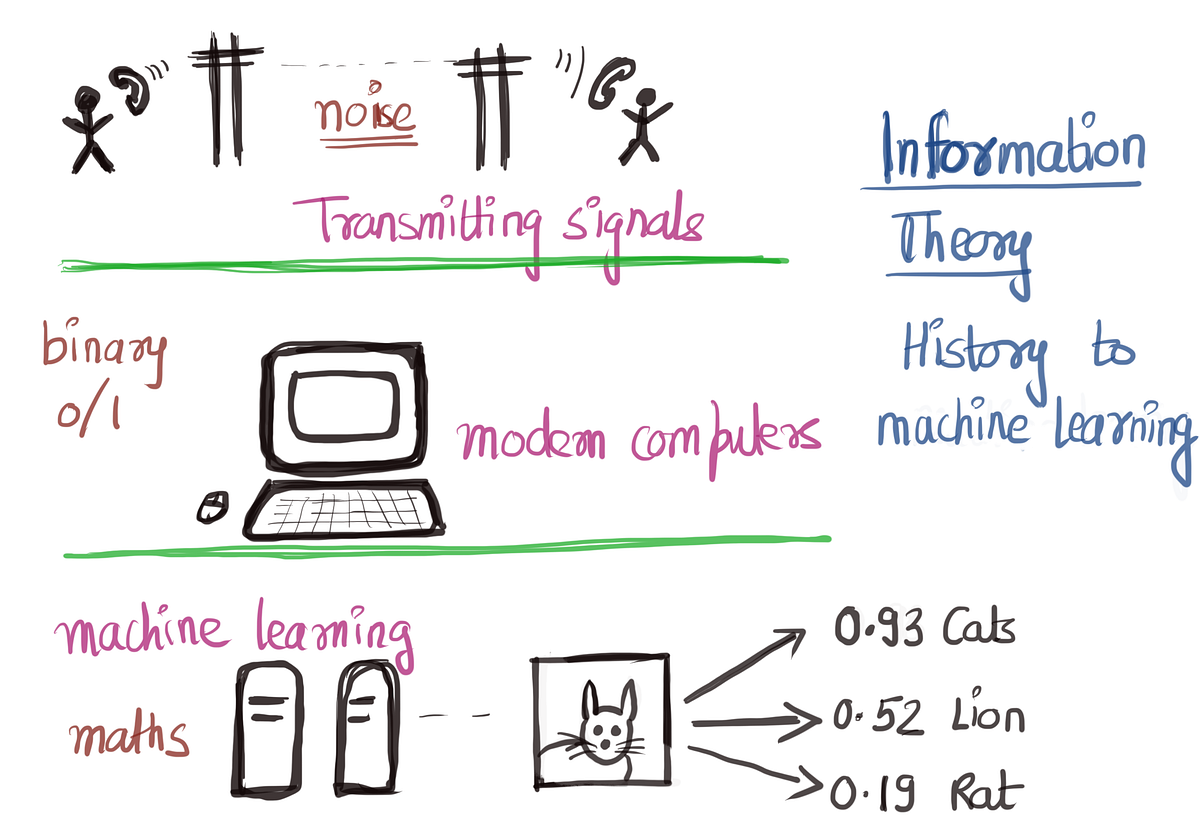 noise
Transmitting signals
Information
Theory
History to
machine learning
binary
0/1
modern computers
machine learning
maths
0.93 Cats
0.52 Lion
0.19 Rat